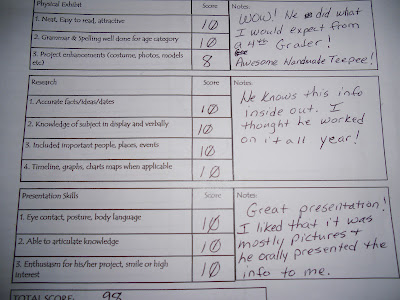 Physical Exhibit Score Notes:
1. Neat, Easy to read, attractive 10
2. Grammar & Spelling well done for age category 10
3. Project enhancements (costume, photos, models etc) 8
WOW! He did what
I would expect from
a 4th Grader!
Awesome Handmade Teepee!
Research Score Notes:
1. Accurate facts/ideas/dates 10
2. Knowledge of subject in display and verbally 10
3. Included important people, places, events 10
4. Timeline, graphs, charts maps when applicable 10
He knows this info
inside out. I
thought he worked
on it all year!
Presentation Skills Score Notes:
1. Eye contact, posture, body language 10
2. Able to articulate knowledge 10
3. Enthusiasm for his/her project, smile or high
interest 10
Great presentation!
I liked that it was
mostly pictures +
he orally presented the
info to me.
TOTAL SCORE: 98